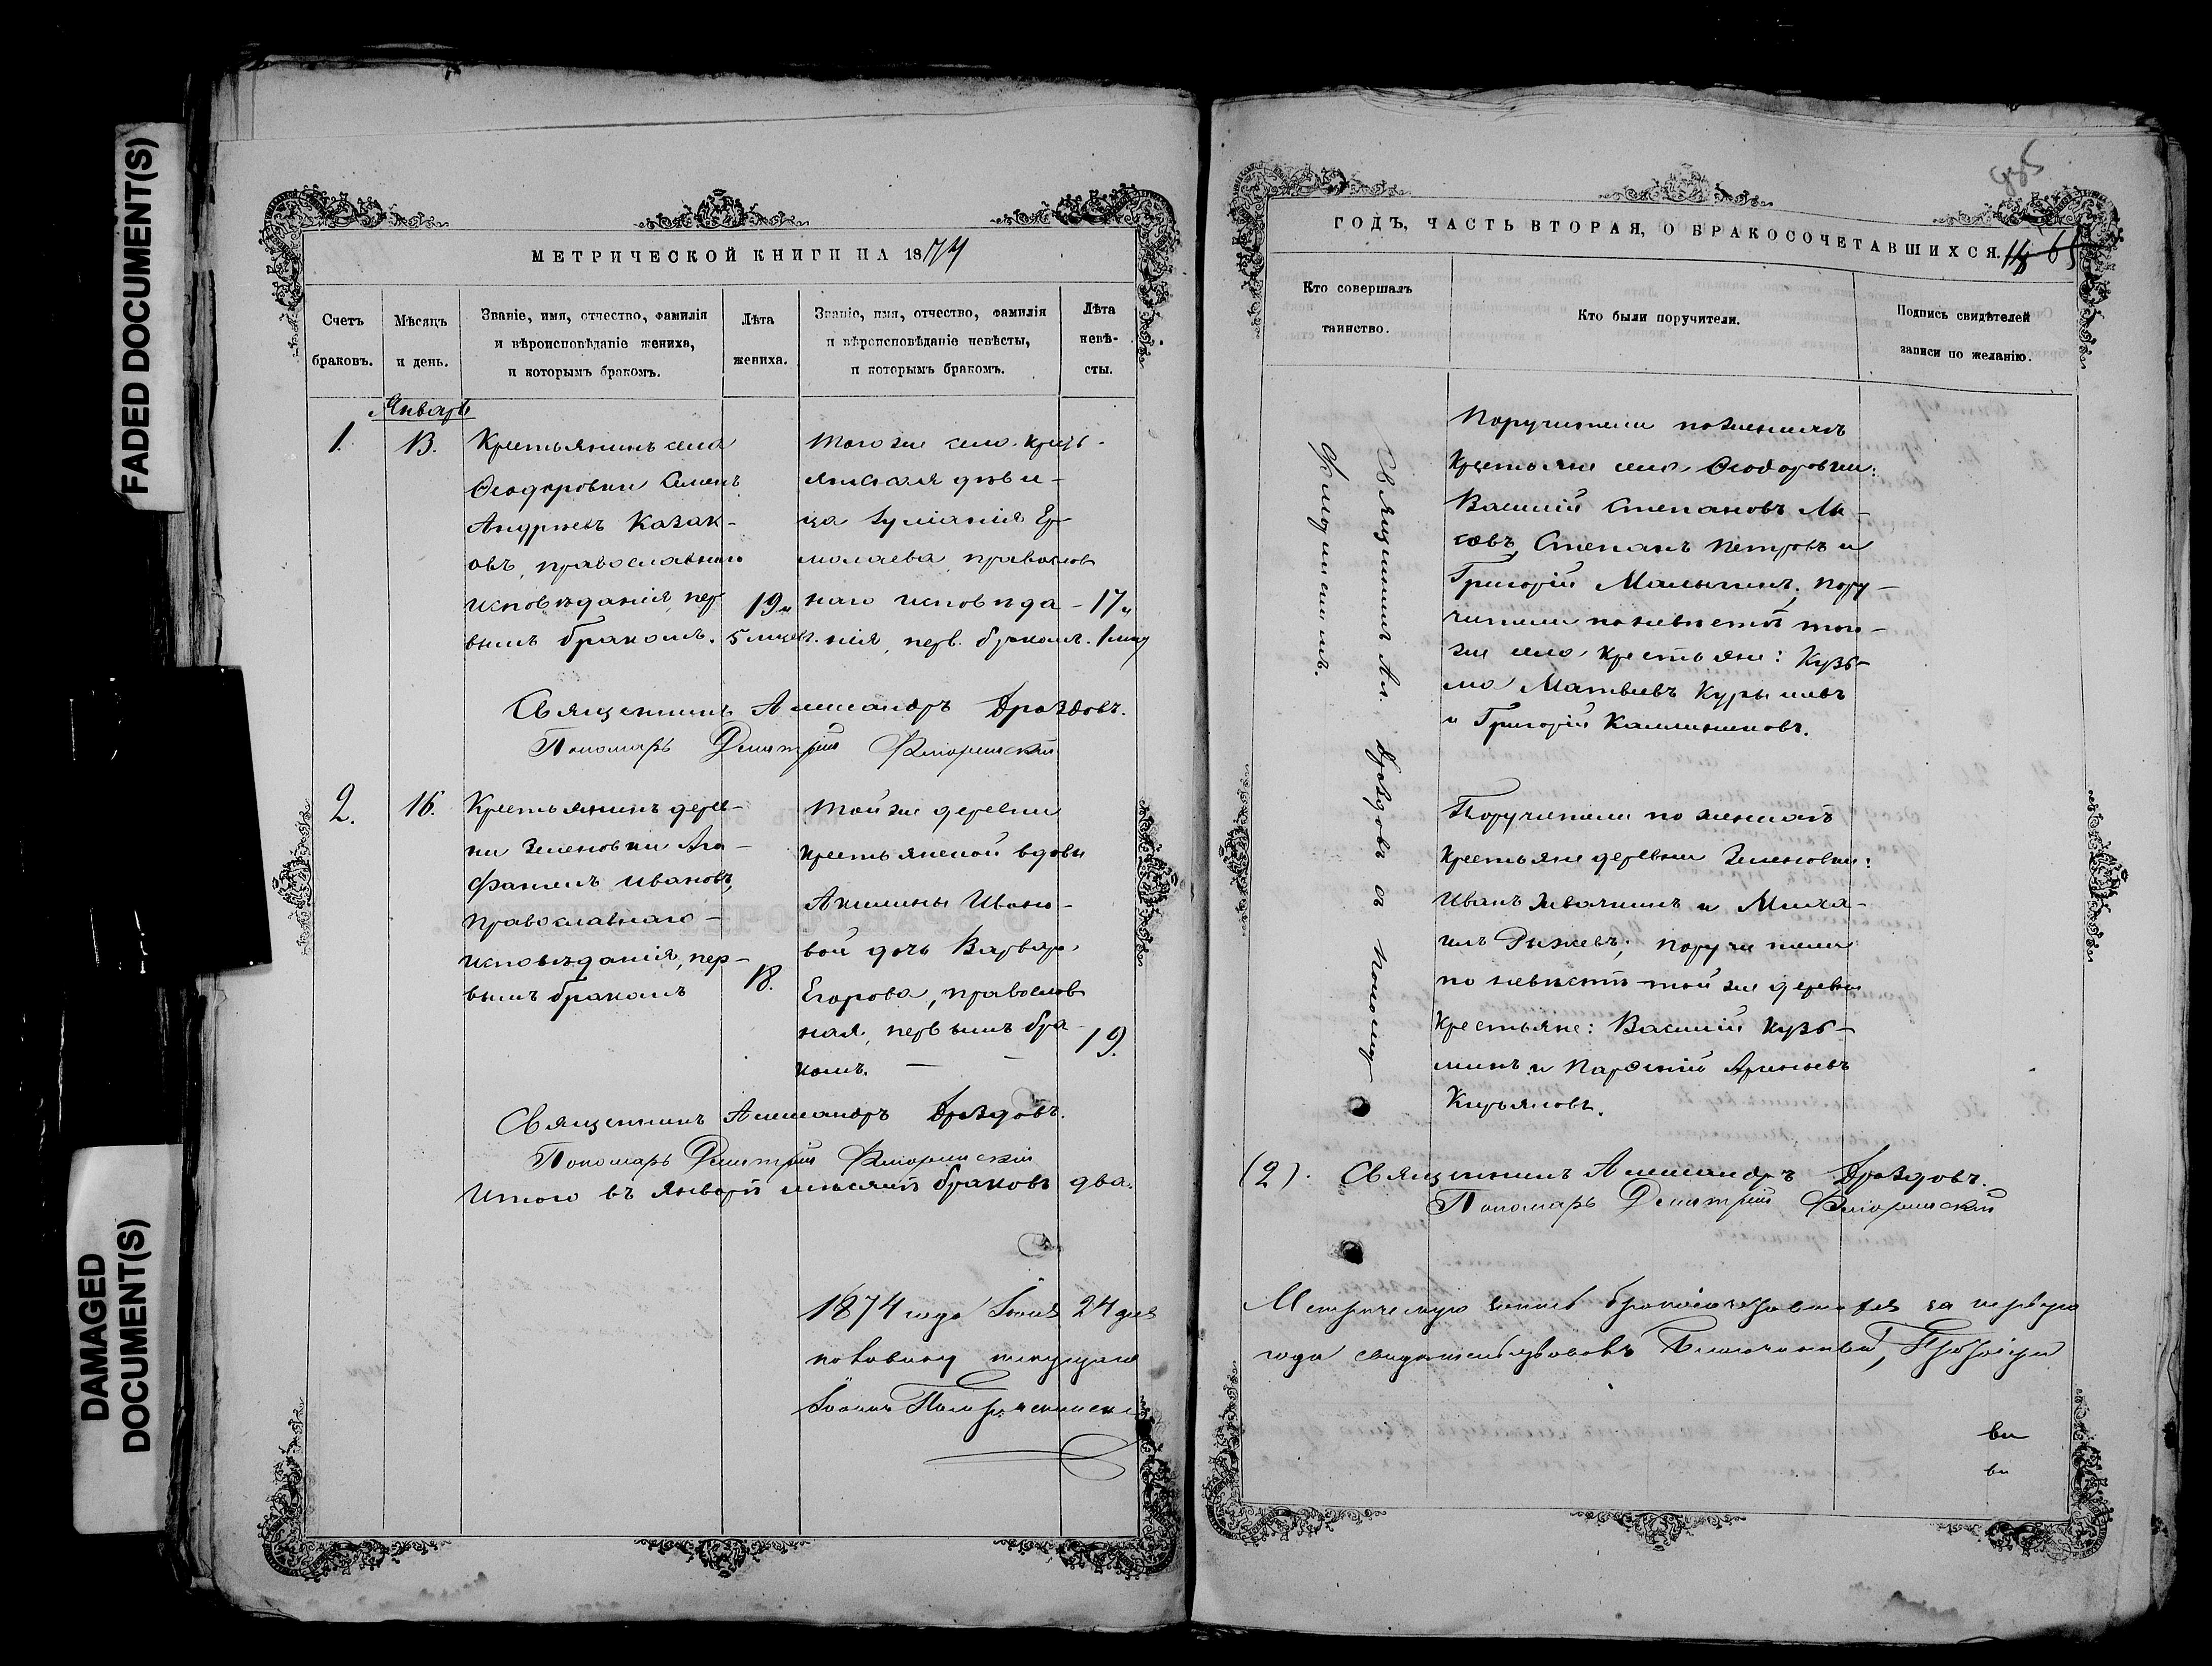 FADED DOCUMENT(S)
DAMAGED
DOCUMENT(S)
МЕТРИЧЕСКОЙ КНИГИ НА 1874
Счетъ
браковъ.
Мѣсяцъ
и день.
Званіе, имя, отчество, фамилія
и вѣроисповѣданіе жениха,
и которымъ бракомъ.
Лѣта
жениха.
Званіе, имя, отчество, фамилія
и вѣроисповѣданіе невѣсты,
и которымъ бракомъ.
Лѣта
невѣ-
сты.
Январь
1.
13.
Крестьянинъ села
Ѳеодоровки Семенъ
Андреевъ Казак-
овъ, православнаго
исповѣданія, пер
вымъ бракомъ.
19
5 мѣсяц.
Того же села крест-
янская дѣви-
ца Ер-
молаева, православ
наго исповѣда-
нія, перв. бракомъ.
17
Священникъ Александръ Дроздовъ.
Пономарь Димитрій
2.
16.
Крестьянинъ дерев-
ни Зеленовки Ага-
фангелъ Ивановъ,
православнаго
исповѣданія, пер-
вымъ бракомъ
18.
Той же деревни
крестьянской вдовы
Акилины Ивано-
вой дочь Варвара
Егорова, православ
ная, первымъ бра-
комъ.
19.
Священникъ Александръ Дроздовъ.
Пономарь Димитрій
Итого въ Январѣ мѣсяцѣ браковъ два.
1874 года Іюля 24 дня
половину текущаго
Іоаннъ
ГОДЪ, ЧАСТЬ ВТОРАЯ, О БРАКОСОЧЕТАВШИХСЯ.
Кто совершалъ
таинство.
Кто были поручители.
Подпись свидѣтелей
записи по желанію.
Священникъ Ал. Дроздовъ съ пономар
Поручители по женихѣ
крестьяне села Ѳеодоровки:
Василій Степановъ Лы-
совъ, Степанъ Петровъ и
Григорій Малыгинъ; пору-
чители по невѣстѣ того-
же села крестьяне: Кузь-
ма Матвѣевъ Курышевъ
и Григорій Калашниковъ.
Поручители по женихѣ
крестьяне деревни Зеленовки:
Иванъ и Миха-
илъ Рыжевъ; поручители
по невѣстѣ той же деревни
крестьяне: Василій Кузь-
минъ и Арсеньевъ
Кирьяновъ.
(2). Священникъ Александръ Дроздовъ.
Пономарь Димитрій
Метрическую запись бракосочетавшихся за первую
года свидетельствовалъ